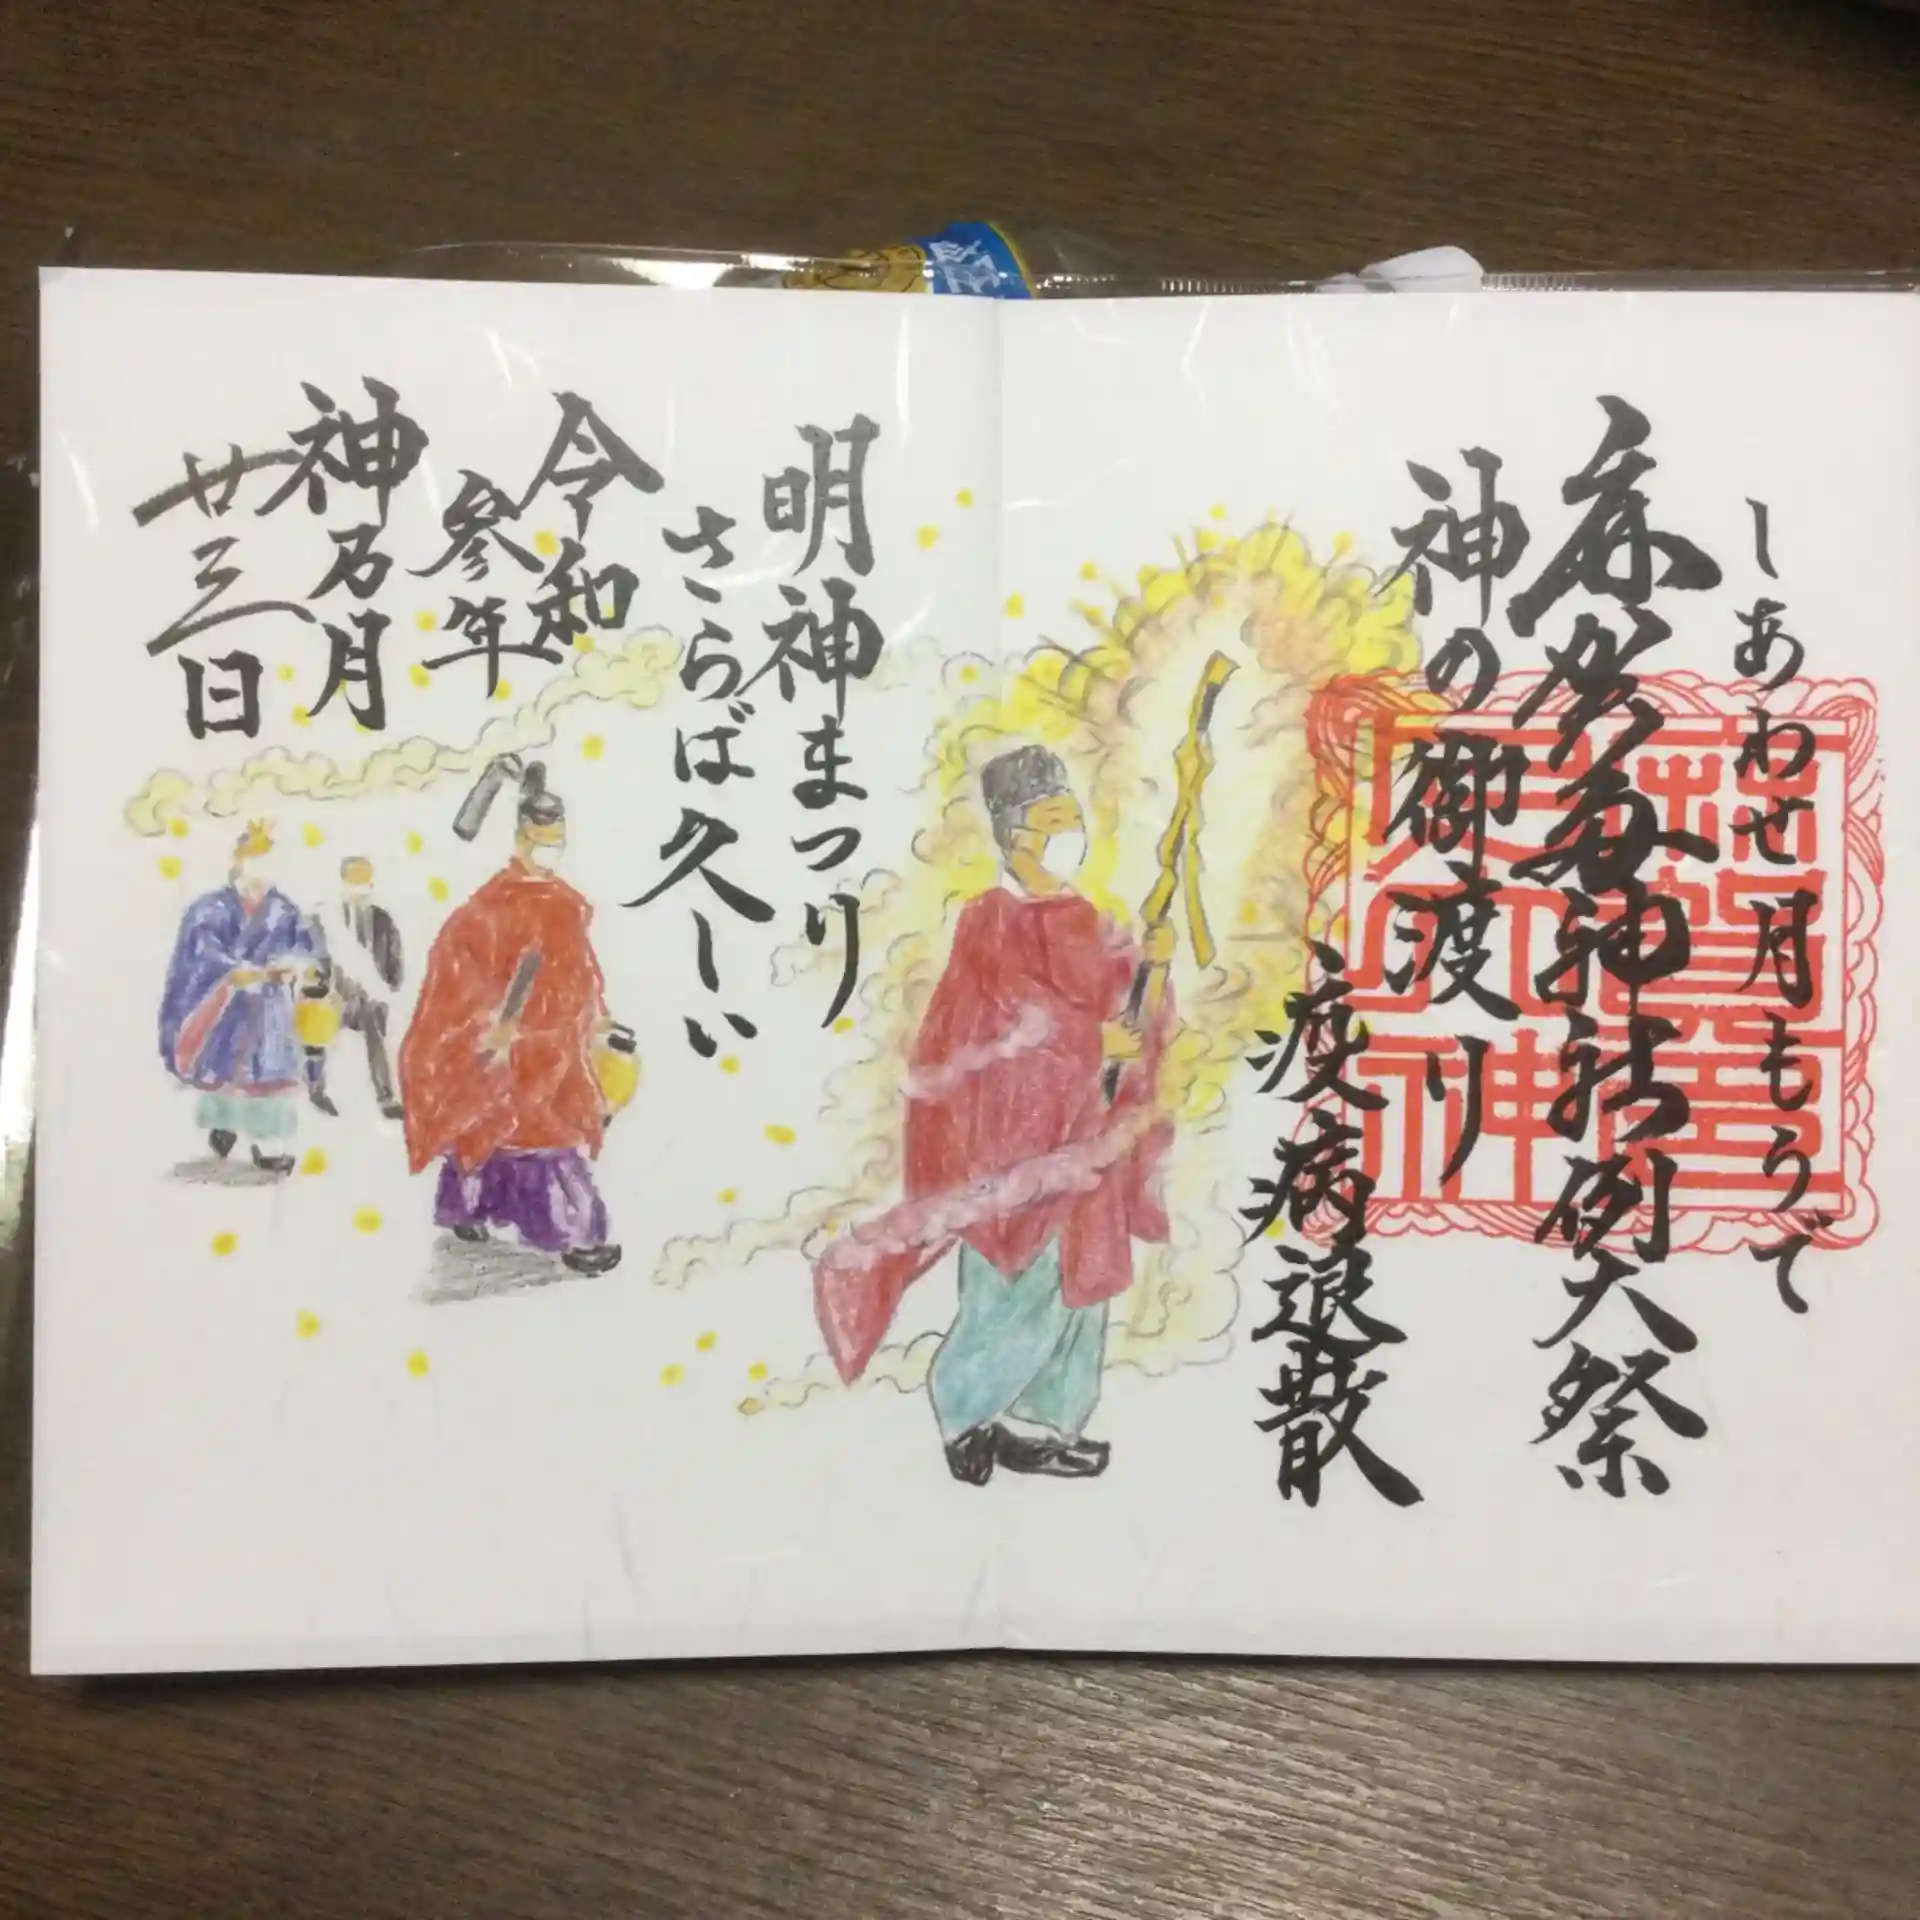 しあわせ月もうで
神社例大祭
神の御渡り
、疫病退散
明神まつり
さらば久しい
令和
参年
神乃月
廿三日